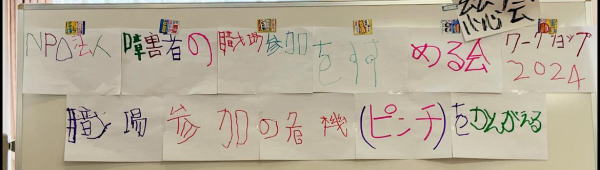 懇会
NPO法人 障害者の職場参加をすすめる会 ワークショップ 2024
職場参加の危機(ピンチ)をかんがえる